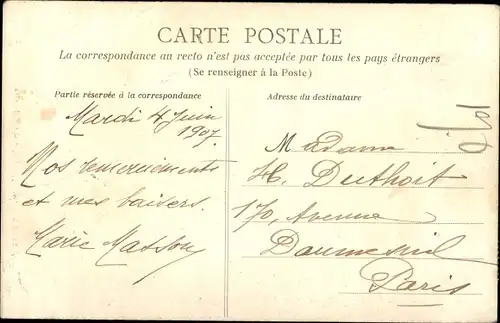 CARTE POSTALE
La correspondance au recto n'est pas acceptée par tous les pays étrangers
(Se renseigner à la Poste)
Partie réservée à la correspondance
Adresse du destinataire
Mardi 4 Juin
1907.
Nos remerciements
et mes baisers.
Marie Masson
Madame
H. Duthoit
170, Avenue
Daumesnil
Paris